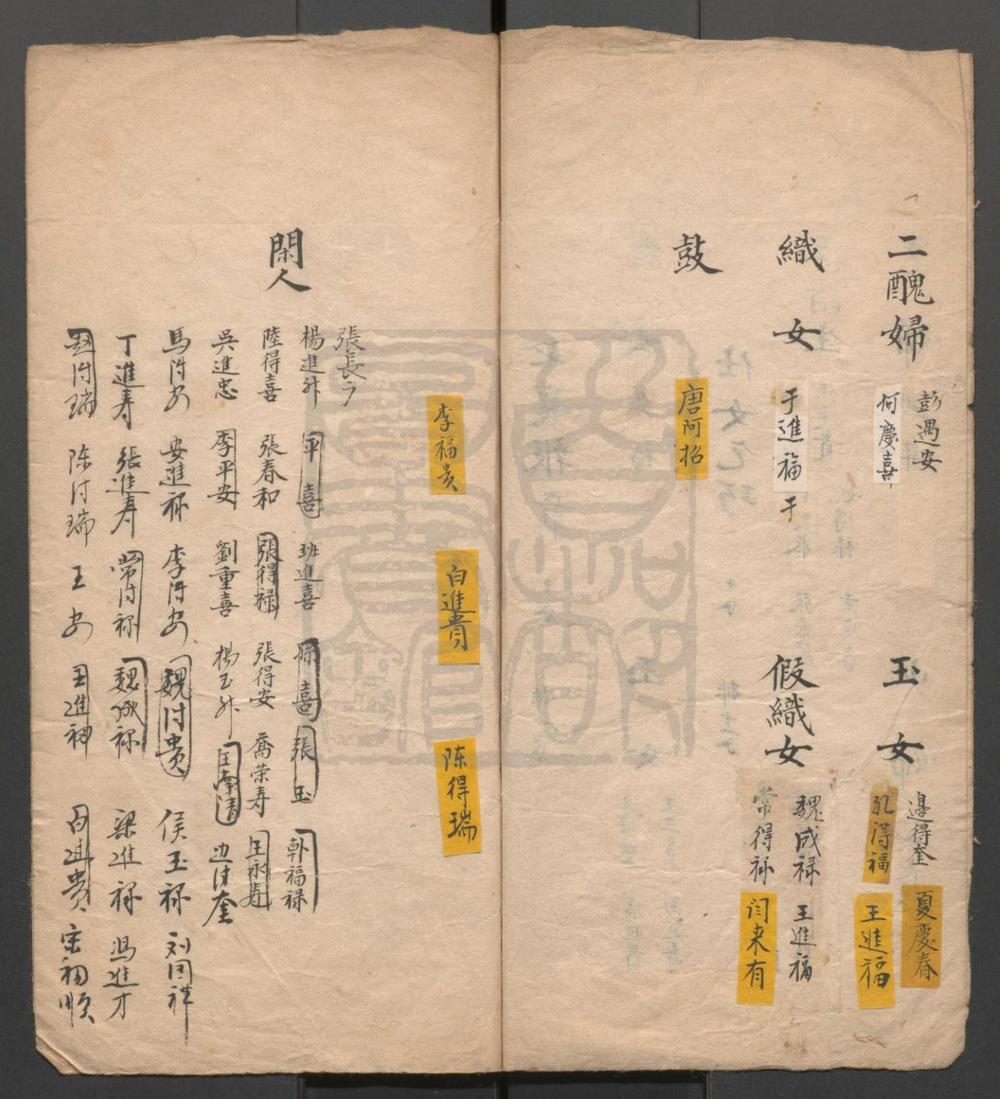 二醜婦
彭遇安
何慶喜
玉女
邊得奎 夏慶春
孔得福 王進福
織女
于進福 于
假織女
魏成禄 王進福
常得禄 闫来有
鼓
唐阿招
李福贵 白進貴 陈得瑞
閑人
張長
楊進升 平喜 班進喜 孫喜 張玉 韩福禄
陸得喜 張春和 張得禄 張得安 喬荣寿 王永寿
吳進忠 李平安 劉重喜 楊玉升 王海清 边得奎
馬得安 安進禄 李得安 魏得贵 侯玉禄 刘国祥
丁進寿 張進寿 常得禄 魏成禄 梁進禄 馮進才
赵得瑞 陈得瑞 王安 王進禄 白進貴 宋福順